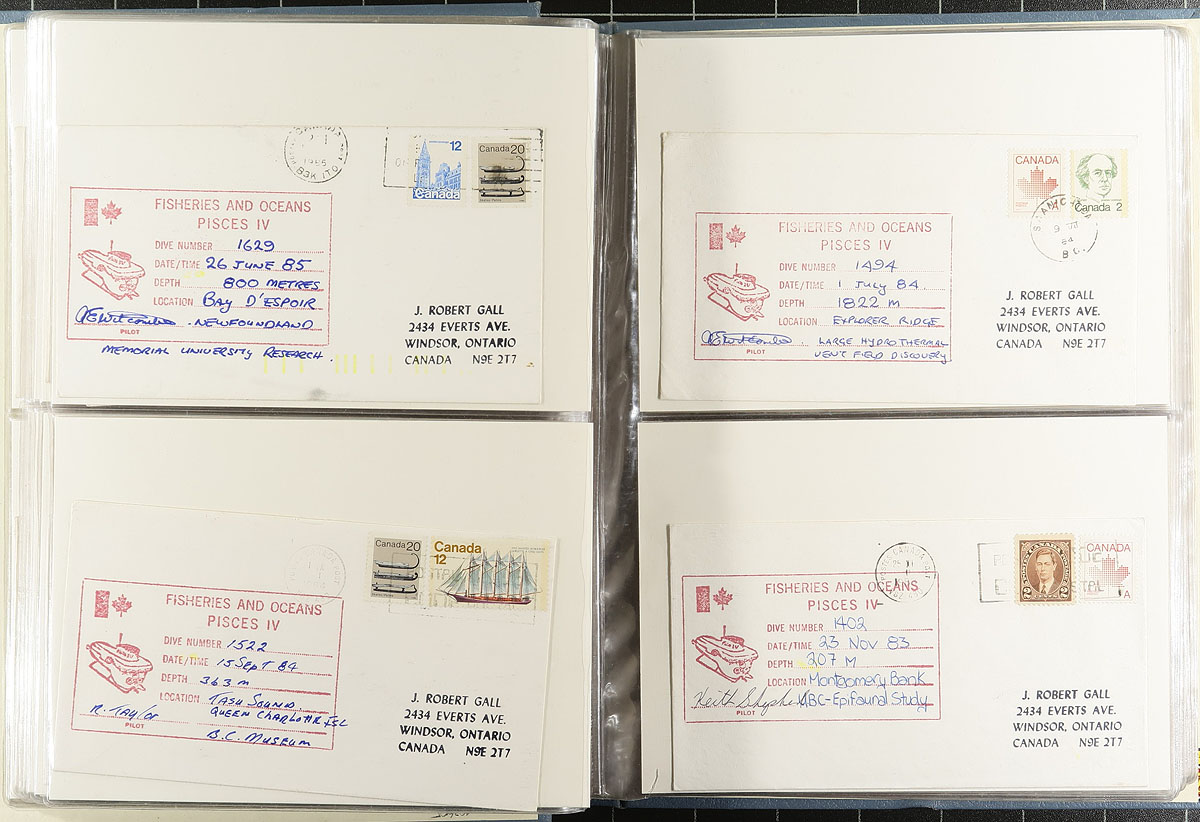 1985
B3K 1T0
12
Canada
Canada 20
FISHERIES AND OCEANS
PISCES IV
DIVE NUMBER 1629
DATE/TIME 26 JUNE 85
DEPTH 800 METRES
LOCATION BAY D'ESPOIR
NEWFOUNDLAND
PILOT
MEMORIAL UNIVERSITY RESEARCH.
J. ROBERT GALL
2434 EVERTS AVE.
WINDSOR, ONTARIO
CANADA N9E 2T7
CANADA
Canada 2
84
FISHERIES AND OCEANS
PISCES IV
DIVE NUMBER 1494
DATE/TIME 1 JULY 84.
DEPTH 1822 m
LOCATION EXPLORER RIDGE
LARGE HYDROTHERMAL
PILOT
VENT FIELD DISCOVERY
J. ROBERT GALL
2434 EVERTS AVE.
WINDSOR, ONTARIO
CANADA N9E 2T7
Canada 20
Canada
12
FISHERIES AND OCEANS
PISCES IV
DIVE NUMBER 1522
DATE/TIME 15 SEPT 84
DEPTH 363 m
LOCATION TASU SOUND
QUEEN CHARLOTTE ISL
R. TAYLOR
PILOT
B.C. MUSEUM
J. ROBERT GALL
2434 EVERTS AVE.
WINDSOR, ONTARIO
CANADA N9E 2T7
CANADA
A
FISHERIES AND OCEANS
PISCES IV
DIVE NUMBER 1402
DATE/TIME 23 Nov 83
DEPTH 207 M
LOCATION Montgomery Bank
Keith UBC-Epifaunal Study
PILOT
J. ROBERT GALL
2434 EVERTS AVE.
WINDSOR, ONTARIO
CANADA N9E 2T7